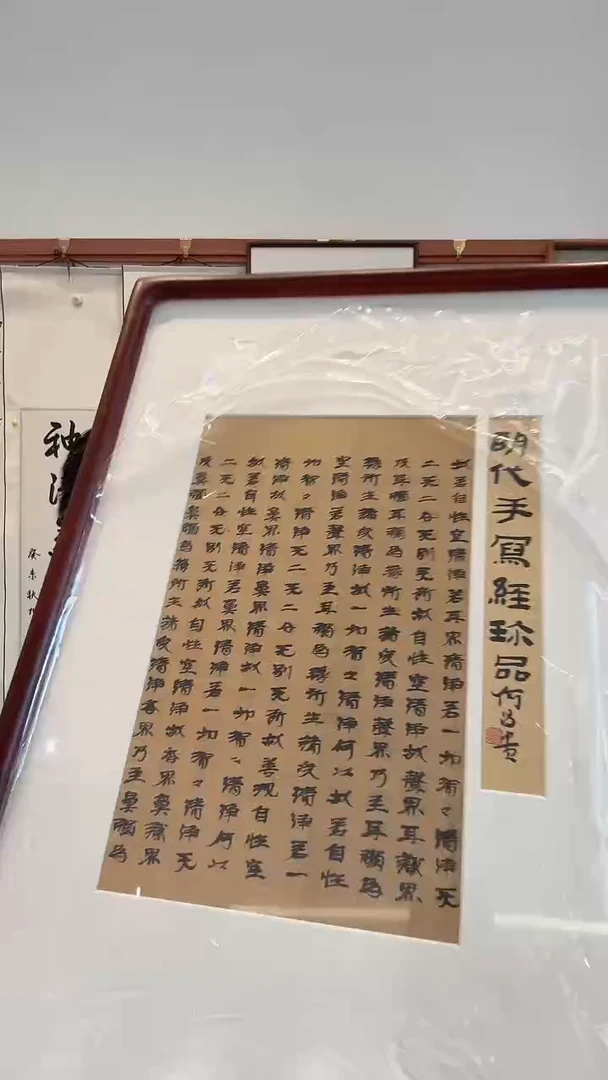 明代手寫經珎品
故若自性空清淨若耳界清淨若一切智々清淨无
二无二分无別无斷故自性空清淨故聲界耳識界
及耳觸耳觸為緣所生諸受清淨聲界乃至耳觸為
緣所生諸受清淨故一切智々清淨何以故若自性
空清淨若聲界乃至耳觸為緣所生諸受清淨若一
切智々清淨无二无二分无別无斷故善現自性空
清淨故鼻界清淨鼻界清淨故一切智々清淨何以
故若自性空清淨若鼻界清淨若一切智々清淨无
二无二分无別无斷故自性空清淨故香界鼻識界
及鼻觸鼻觸為緣所生諸受清淨香界乃至鼻觸為
神
癸未秋